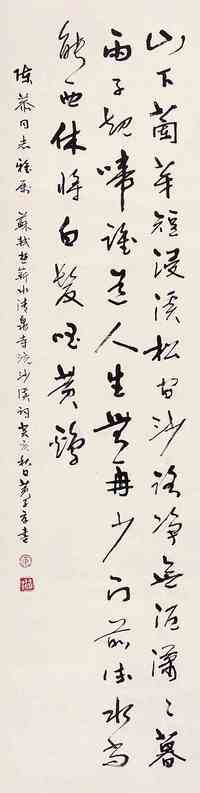 山下蘭芽短浸溪松間沙路淨無泥瀟々暮
雨子規啼誰道人生無再少門前流水尚
能西休將白髮唱黃雞
陳恭同志雅屬 蘇軾遊蘄水清泉寺浣沙溪詞 癸亥秋日 書